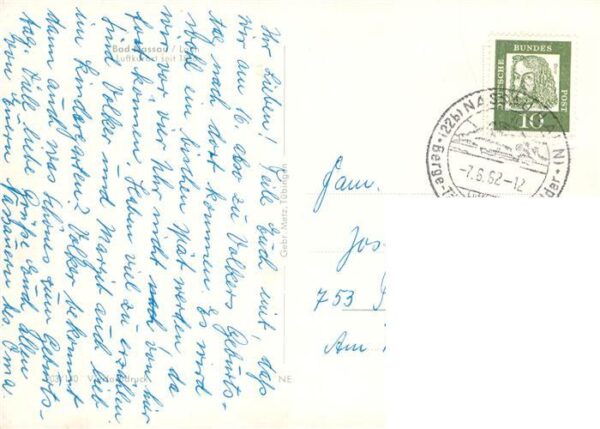 Ihr Lieben! Teile Euch mit, daß
wir am 16. also zu Volkers Geburts-
tag nach dort kommen Es wird
wohl ein bischen spät werden da
wir vor vier Uhr nicht von hier
fort können Haben viel zu erzählen
Sind Volker und Margit auch lieb
im Kindergarten? Volker bekommt
dann auch was schönes zum Geburts-
tag. Viele liebe Grüße Euch allen
von Euern Nassauern des Oma.
Bad Nassau / Lahn
Luftkurort seit
Gebr. Metz, Tübingen
NE
Fam.
Jos
753
Am
DEUTSCHE BUNDES POST
10
(22b) NASSAU
Berge
-7.6.62-12